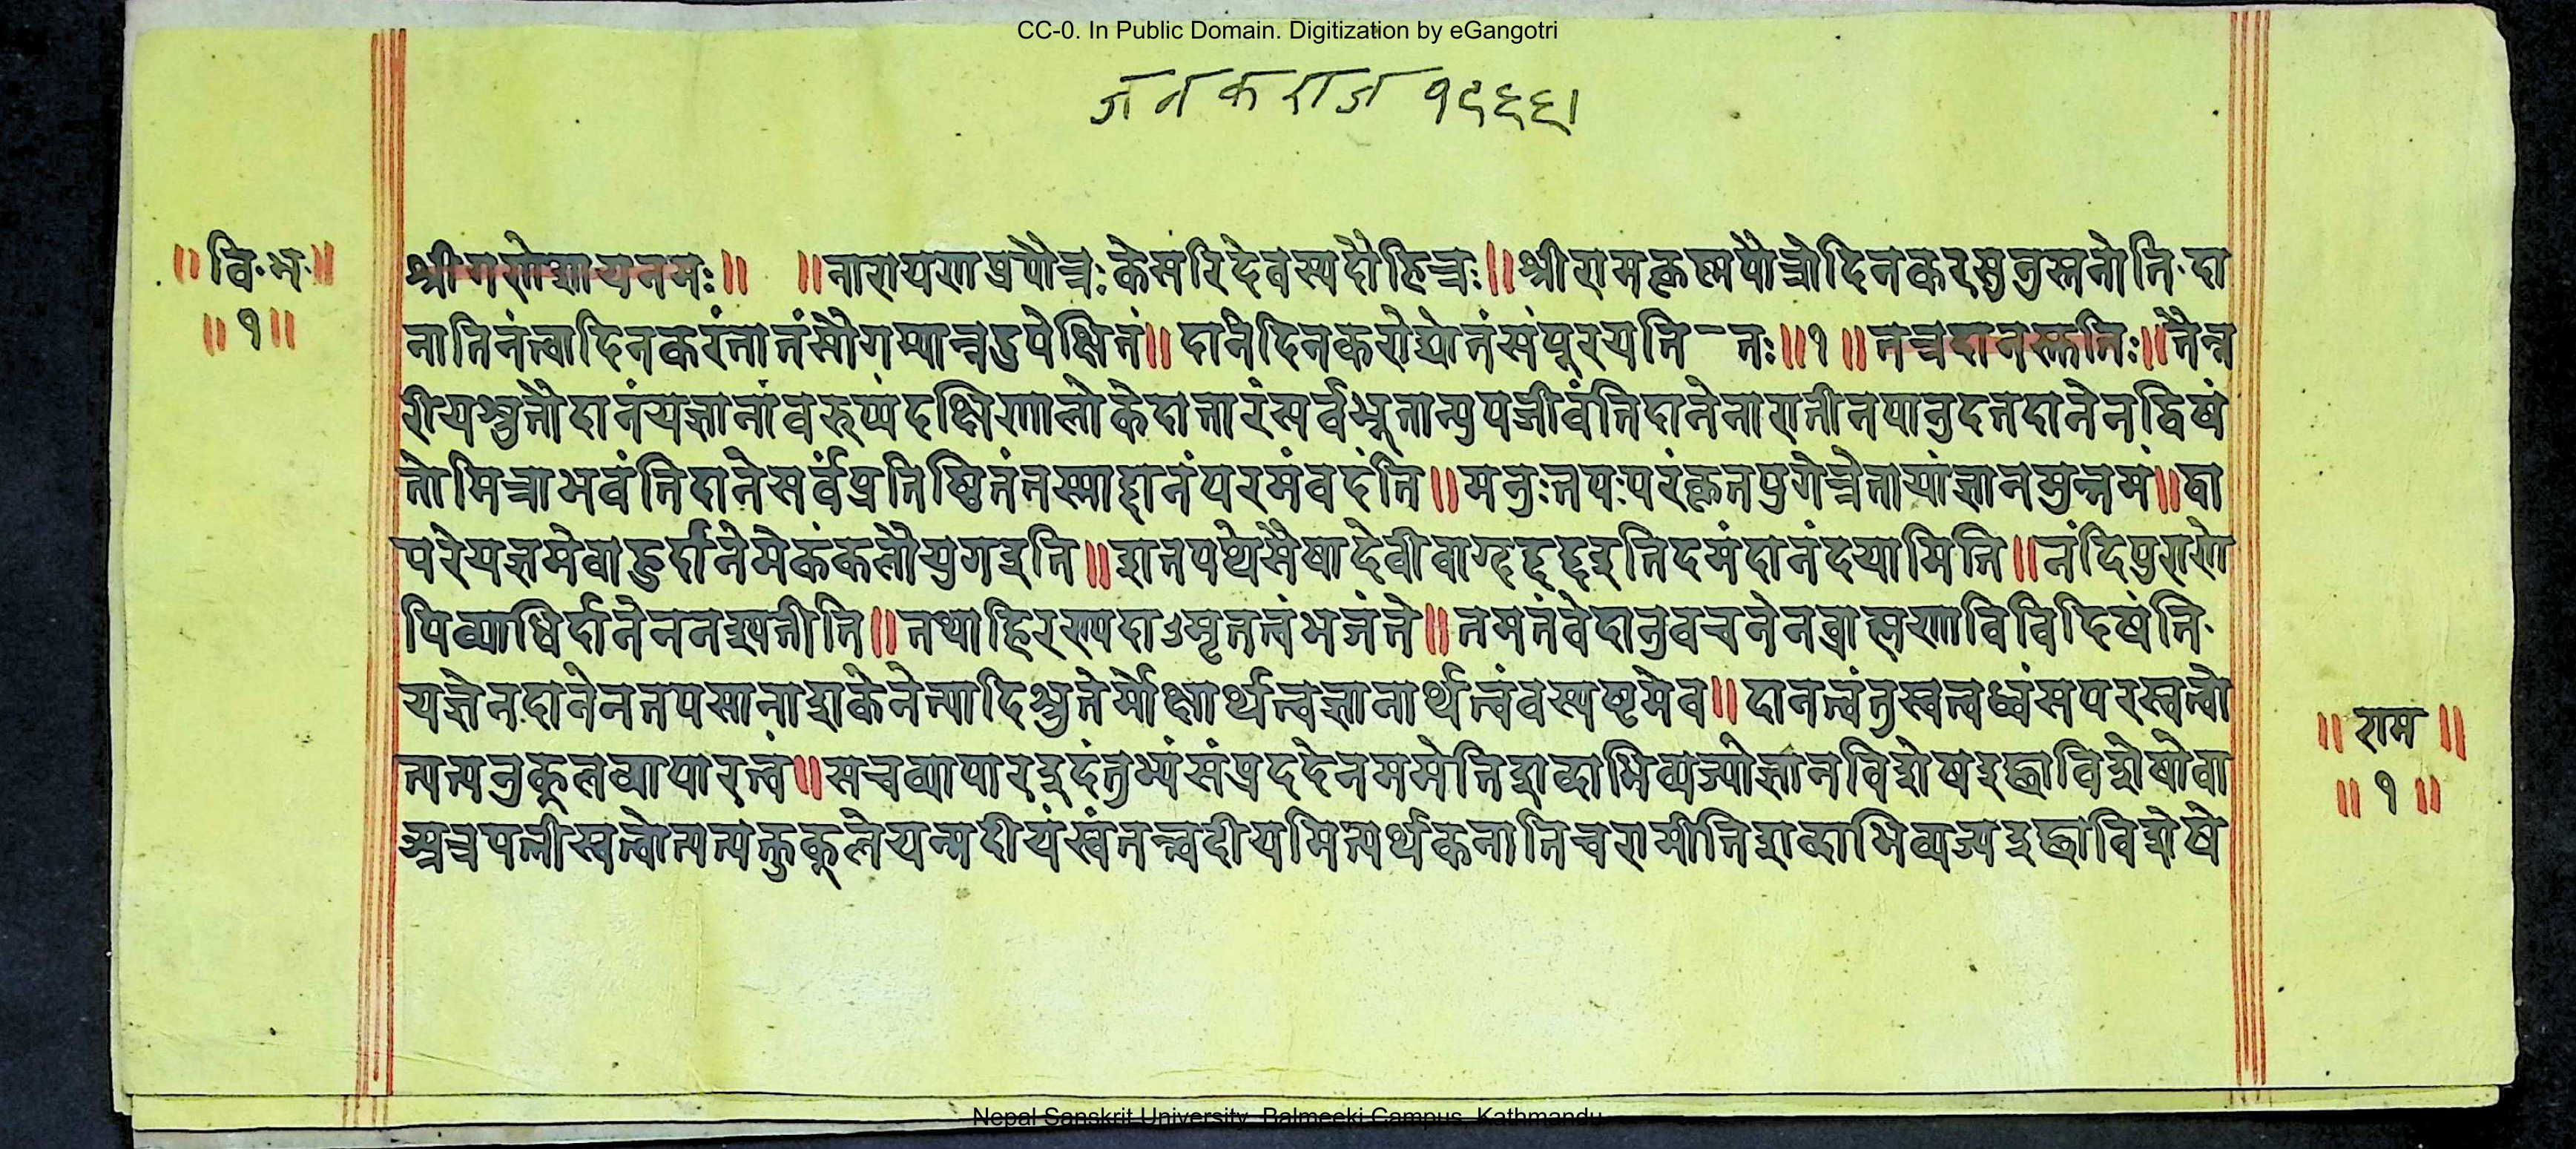 CC-0. In Public Domain. Digitization by eGangotri
जनकराज १९६६।
॥वि·भ·॥
॥१॥
श्रीगणेशायनमः॥ ॥नारायणप्रपौत्रःकेसरिदेवस्यदौहित्रः॥श्रीरामकृष्णपौत्रोदिनकरसुतुस्तनोति·दा
नातिनंत्वादिनकरंतातंसौगम्यान्नदुपेक्षितं॥दानंदिनकरोद्योतंसंपूरयति-तः॥१॥तत्रदानस्तुतिः॥तैत्त
रीयश्रुतौदानंयज्ञानांवरुप्यंदक्षिणालोकेदातारंसर्वभूतान्युपजीवंतिदानेनारातीनपानुदतदानेनद्विषं
तोमित्राभवंतिदानेसर्वंप्रतिष्ठितंतस्माद्दानंपरमंवदंति॥मनुःतपःपरंकृतयुगेत्रेतायांज्ञानमुत्तमं॥द्वा
परेयज्ञमेवाहुर्दानंमेकंकलौयुगइति॥शतपथेसैषादेवीवाग्दद्दद्दइतिदमंदानंदयामिति॥नंदिपुराणे
पिव्याधिर्दानेननश्यतीति॥तथाहिरण्यदाऽमृतत्वंभजंते॥तमतंवेदानुवचनेनब्राह्मणाविविदिषंति·
यज्ञेन·दानेनतपसानाशकेनेत्यादिश्रुतेर्मोक्षार्थत्वज्ञानार्थत्वंवस्पष्टमेव॥दानत्वंतुस्वत्वध्वंसपरस्वत्वो
त्पत्यनुकूलव्यापारत्वं॥सचव्यापारइदंतुभ्यंसंप्रददेनममेतिशब्दाभिव्यज्योज्ञानविशेषइछाविशेषोवा
अत्रपत्नीस्वत्वोत्पत्यक्तुकूलेयन्मदीयंस्वंतत्त्वदीयमित्यर्थकनातिचरामीतिशब्दाभिव्यज्यइछाविशेषे
॥राम॥
॥१॥
Nepal Sanskrit University, Balmeeki Campus, Kathmandu